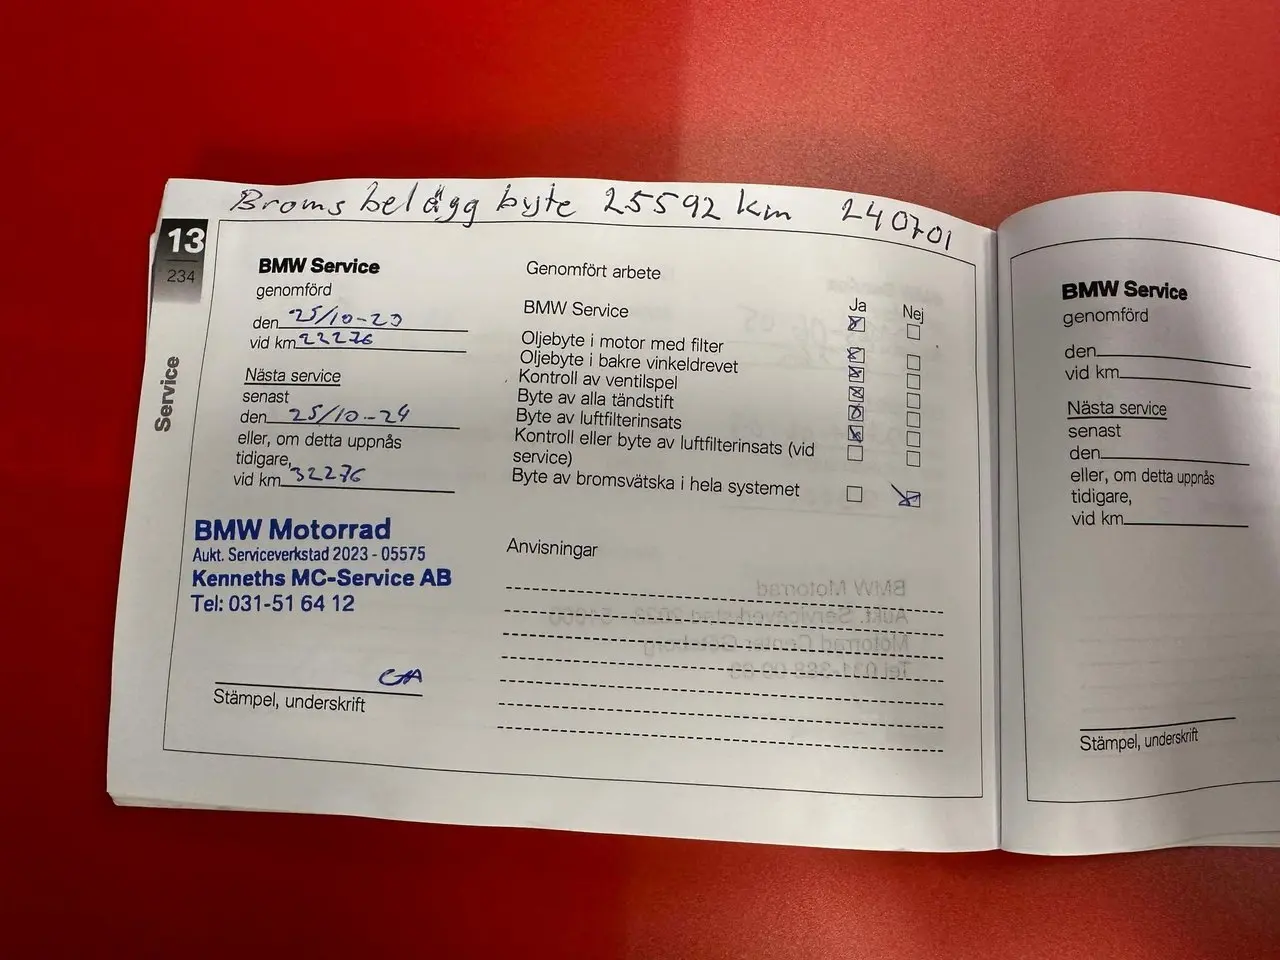 Broms belägg byte 25592 km 240701
13
234
Service
BMW Service
genomförd
den 25/10-23
vid km 22276
Nästa service
senast
den 25/10-24
eller, om detta uppnås
tidigare,
vid km 32276
BMW Motorrad
Aukt. Serviceverkstad 2023 - 05575
Kenneths MC-Service AB
Tel: 031-51 64 12
Stämpel, underskrift
Genomfört arbete
Ja Nej
BMW Service
Oljebyte i motor med filter
Oljebyte i bakre vinkeldrevet
Kontroll av ventilspel
Byte av alla tändstift
Byte av luftfilterinsats
Kontroll eller byte av luftfilterinsats (vid
service)
Byte av bromsvätska i hela systemet
Anvisningar
BMW Service
genomförd
den
vid km
Nästa service
senast
den
eller, om detta uppnås
tidigare,
vid km
Stämpel, underskrift